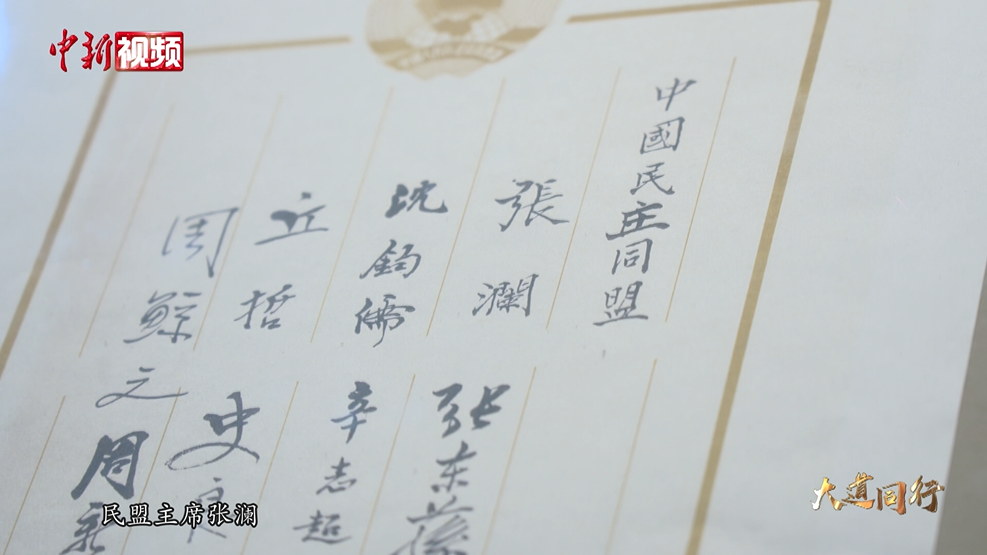 中新视频
中國民主同盟
張瀾
沈鈞儒
丘哲
周鯨文
张东蓀
辛志超
史良
周新
民盟主席张澜
大道同行